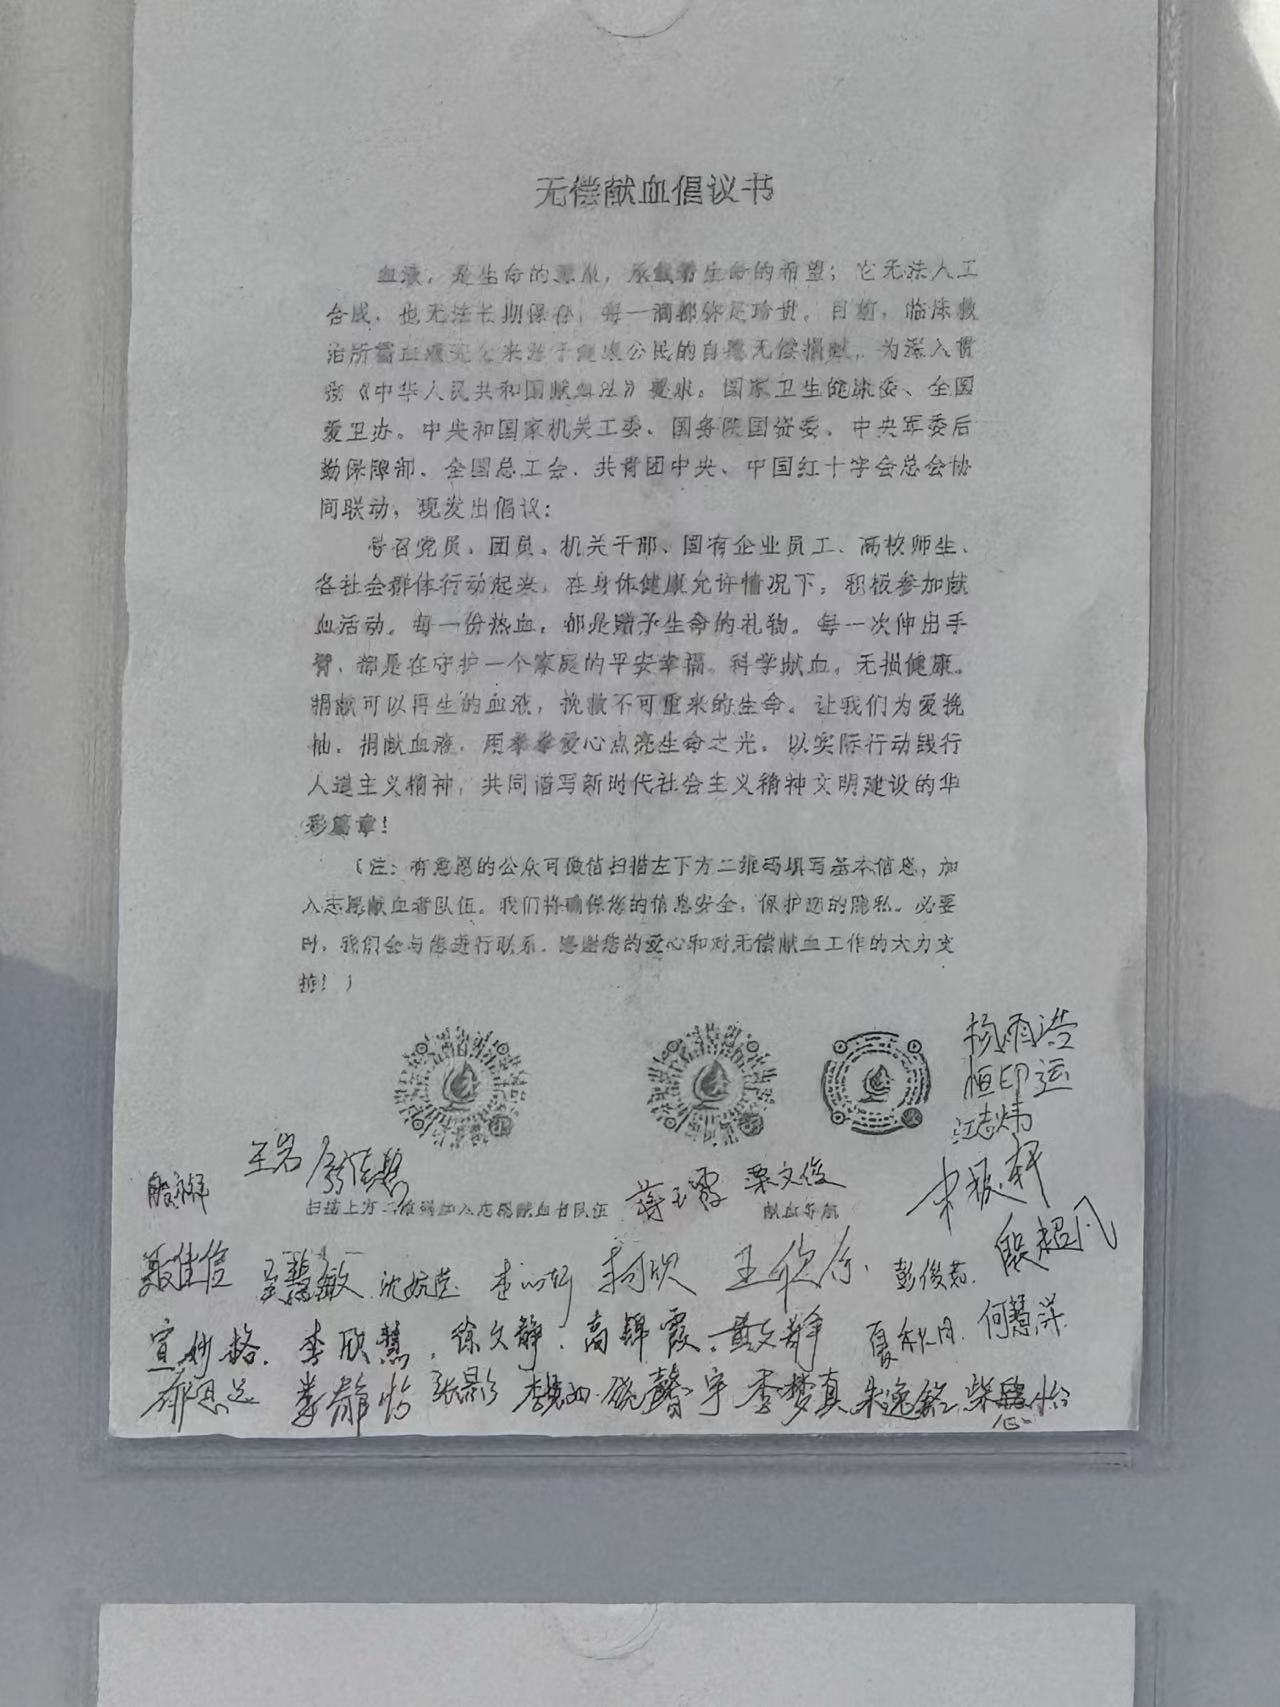 无偿献血倡议书
血液，是生命的源泉，承载着生命的希望；它无法人工
合成，也无法长期保存，每一滴都弥足珍贵。目前，临床救
治所需血液完全来源于健康公民的自愿无偿捐献。为深入贯
彻《中华人民共和国献血法》要求，国家卫生健康委、全国
爱卫办、中央和国家机关工委、国务院国资委、中央军委后
勤保障部、全国总工会、共青团中央、中国红十字会总会协
同联动，现发出倡议：
号召党员、团员、机关干部、国有企业员工、高校师生、
各社会群体行动起来，在身体健康允许情况下，积极参加献
血活动。每一份热血，都是赠予生命的礼物。每一次伸出手
臂，都是在守护一个家庭的平安幸福。科学献血，无损健康。
捐献可以再生的血液，挽救不可重来的生命。让我们为爱挽
袖，捐献血液，用拳拳爱心点亮生命之光，以实际行动践行
人道主义精神，共同谱写新时代社会主义精神文明建设的华
彩篇章！
（注：有意愿的公众可微信扫描左下方二维码填写基本信息，加
入志愿献血者队伍。我们将确保您的信息安全，保护您的隐私。必要
时，我们会与您进行联系。感谢您的爱心和对无偿献血工作的大力支
持！）
杨雨浩
恒印运
江志炜
王岩
蒋玉霞 栗文俊
扫描上方二维码加入志愿献血者队伍 献血导航
殷超凡
聂佳信 慧敏 沈婉莹 柯欣 王欣 彭俊茹
宣妙格 李欣慧 徐文静 高锦霞 黄文静 夏秋月 何慧洋
娄静怡 张影 饶馨宇 李梦真 朱逸铭 柴怡